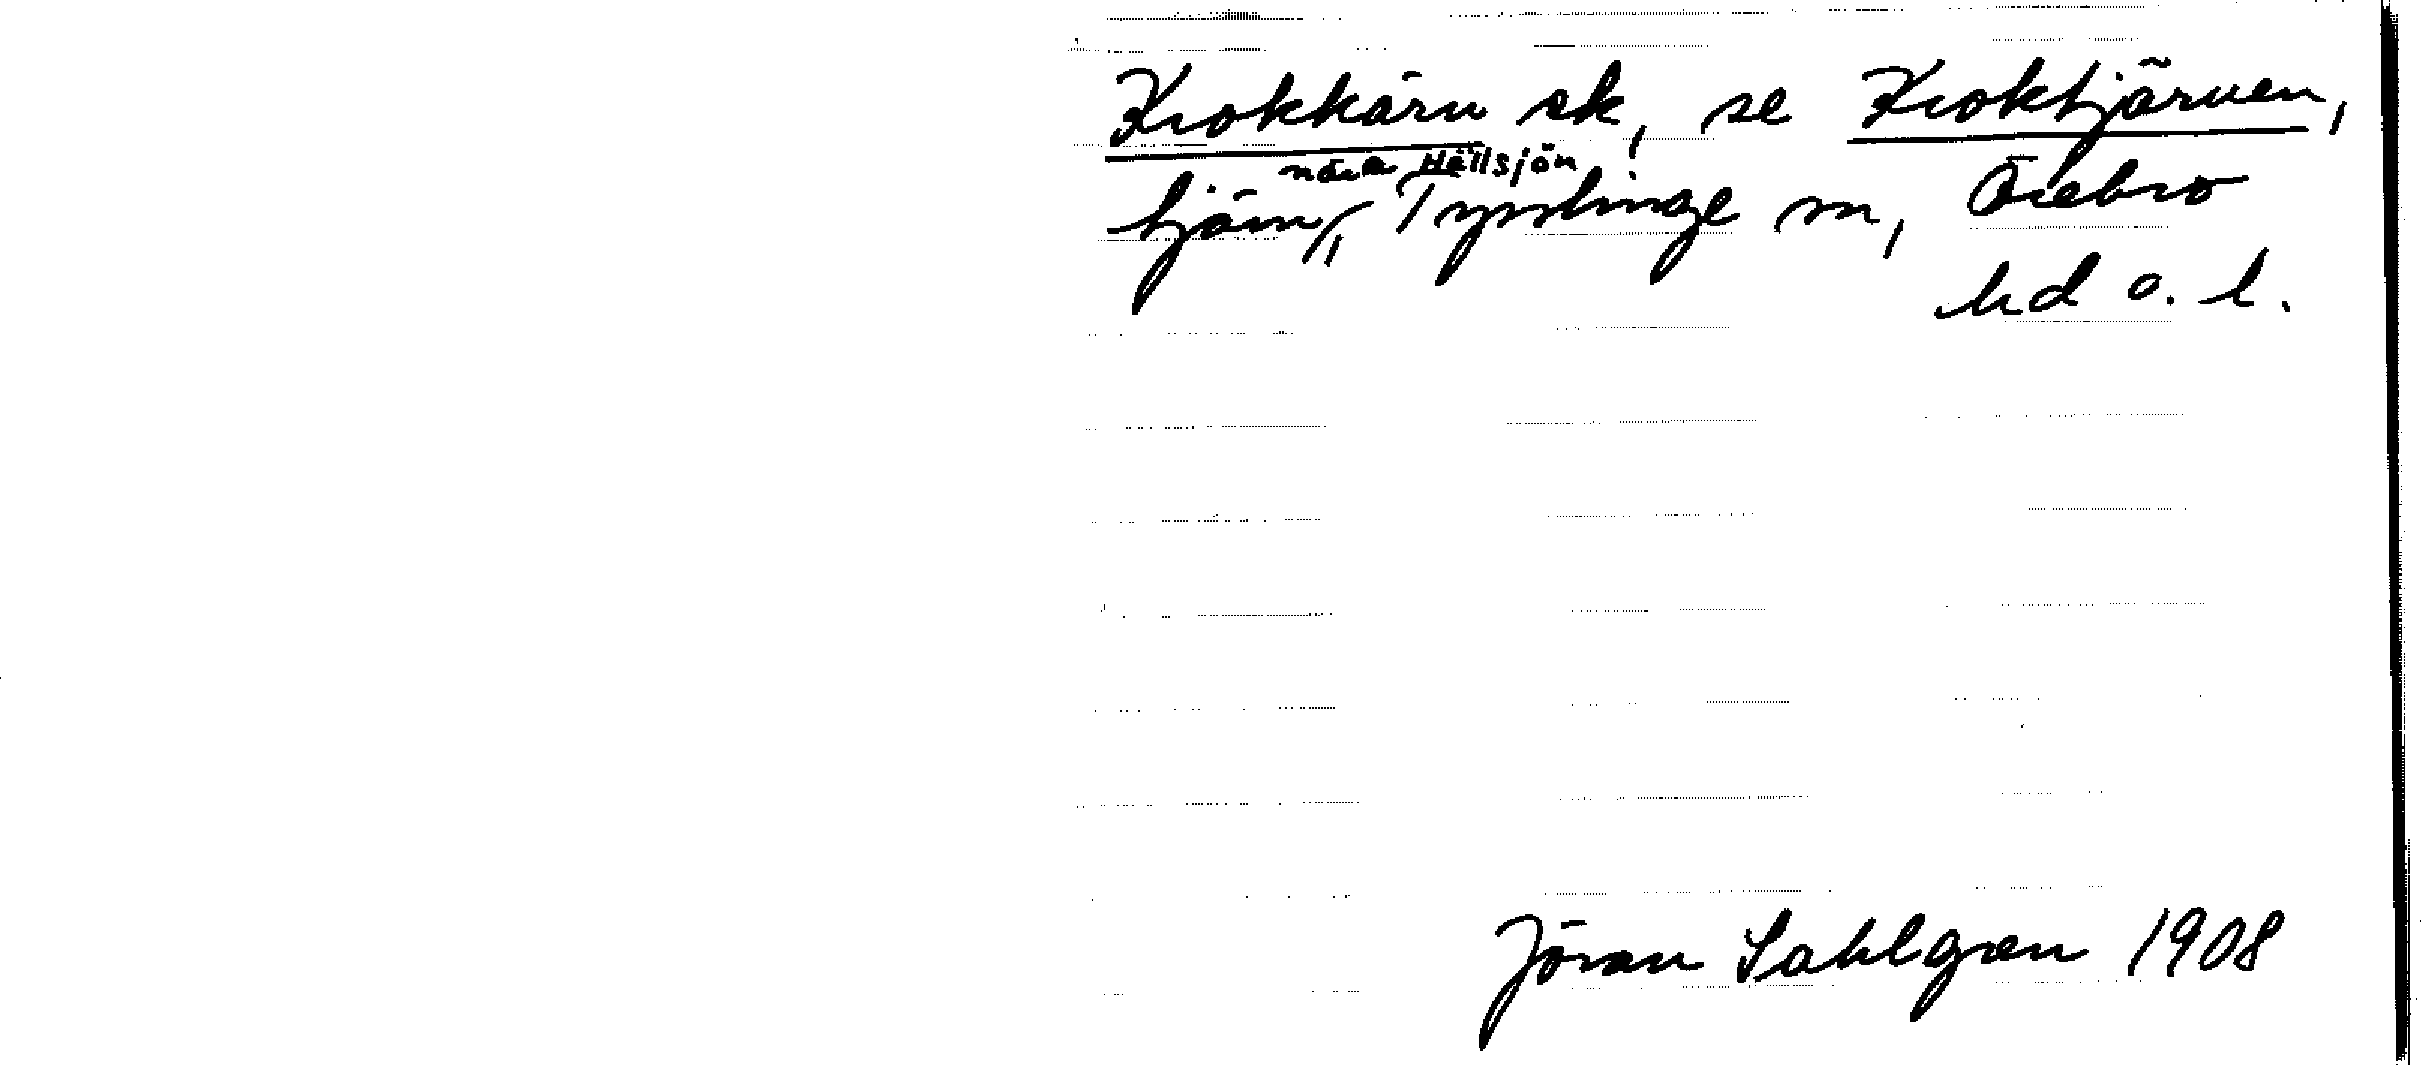 Krokkärn sk, se Kroktjärnen,
nära Hällsjön
tjärn, Tysslinge sn, Örebro
hd o. l.
Jöran Sahlgren 1908